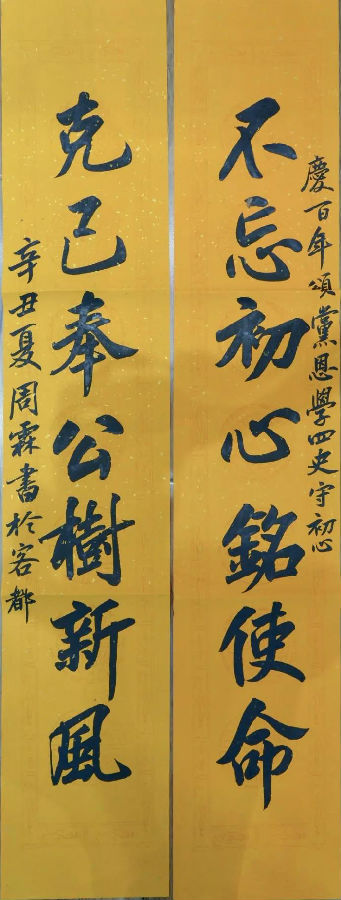 慶百年頌黨恩學四史守初心
不忘初心銘使命
克己奉公樹新風
辛丑夏周霖書於客都